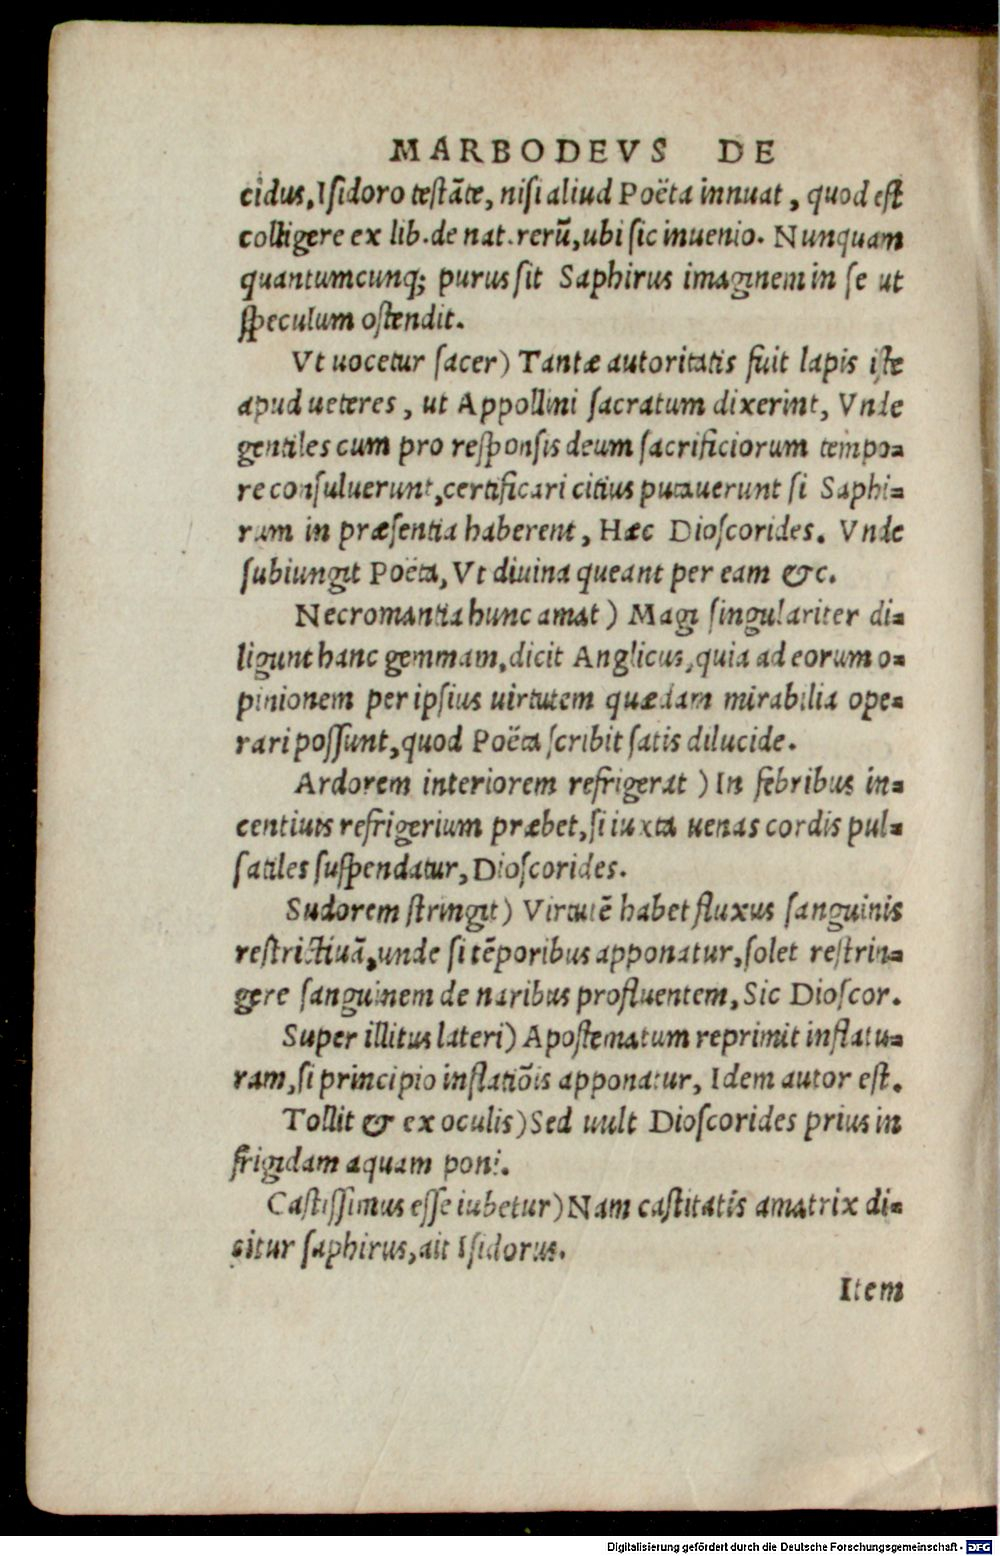 MARBODEVS DE
cidus, Isidoro testãte, nisi aliud Poëta innuat, quod est
colligere ex lib. de nat. rerũ, ubi sic inuenio. Nunquam
quantumcunq; purus sit Saphirus imaginem in se ut
speculum ostendit.
Vt uocetur sacer) Tantæ autoritatis fuit lapis iste
apud ueteres, ut Appollini sacratum dixerint, Vnde
gentiles cum pro responsis deum sacrificiorum tempo-
re consuluerunt, certificari citius putauerunt si Saphi-
rum in præsentia haberent, Hæc Dioscorides. Vnde
subiungit Poëta, Vt diuina queant per eam &c.
Necromantia hunc amat) Magi singulariter di-
ligunt hanc gemmam, dicit Anglicus, quia ad eorum o-
pinionem per ipsius uirtutem quædam mirabilia ope-
rari possunt, quod Poëta scribit satis dilucide.
Ardorem interiorem refrigerat) In febribus in-
centiuis refrigerium præbet, si iuxta uenas cordis pul-
satiles suspendatur, Dioscorides.
Sudorem stringit) Virtutẽ habet fluxus sanguinis
restrictiuã, unde si tẽporibus apponatur, solet restrin-
gere sanguinem de naribus profluentem, Sic Dioscor.
Super illitus lateri) Apostematum reprimit inflatu-
ram, si principio inflatiõis apponatur, Idem autor est.
Tollit & ex oculis) Sed uult Dioscorides prius in
frigidam aquam poni.
Castissimus esse iubetur) Nam castitatis amatrix di-
citur saphirus, ait Isidorus.
Item
Digitalisierung gefördert durch die Deutsche Forschungsgemeinschaft - DFG